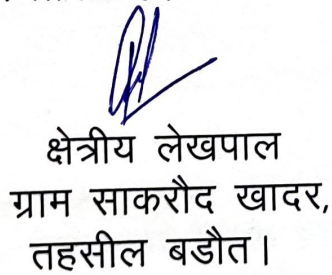 क्षेत्रीय लेखपाल
ग्राम साकरौद खादर,
तहसील बडौत।